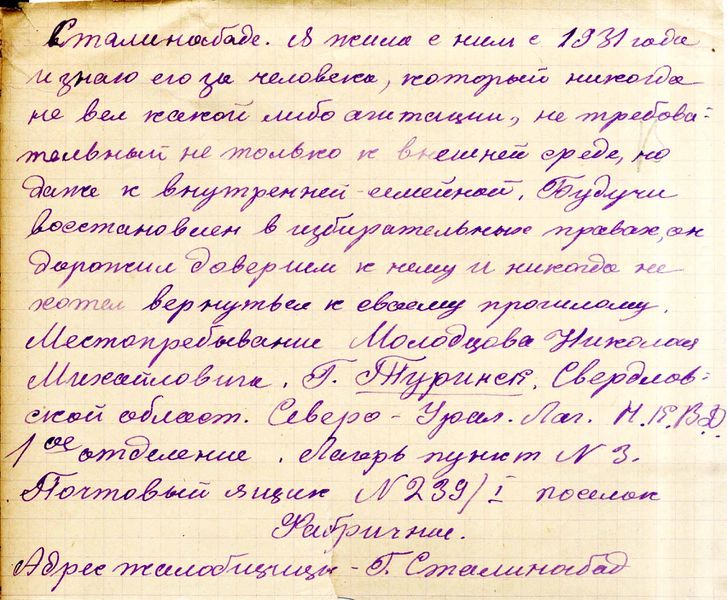 Сталинабаде. Я жила с ним с 1931 года
и знаю его за человека, который никогда
не вел какой либо агитации, не требова-
тельный не только к внешней среде, но
даже к внутренней - семейной. Будучи
восстановлен в избирательных правах, он
дорожил доверием к нему и никогда не
хотел вернуться к своему прошлому.
Местопребывание Молодцова Николая
Михайловича. Г. Туринск. Свердлов-
ской област. Северо - Урал. Лаг. Н.К.В.Д
1ое отделение. Лагерь пункт N 3.
Почтовый ящик N 239/I поселок
Фабричные.
Адрес жалобщицы - Г. Сталинабад